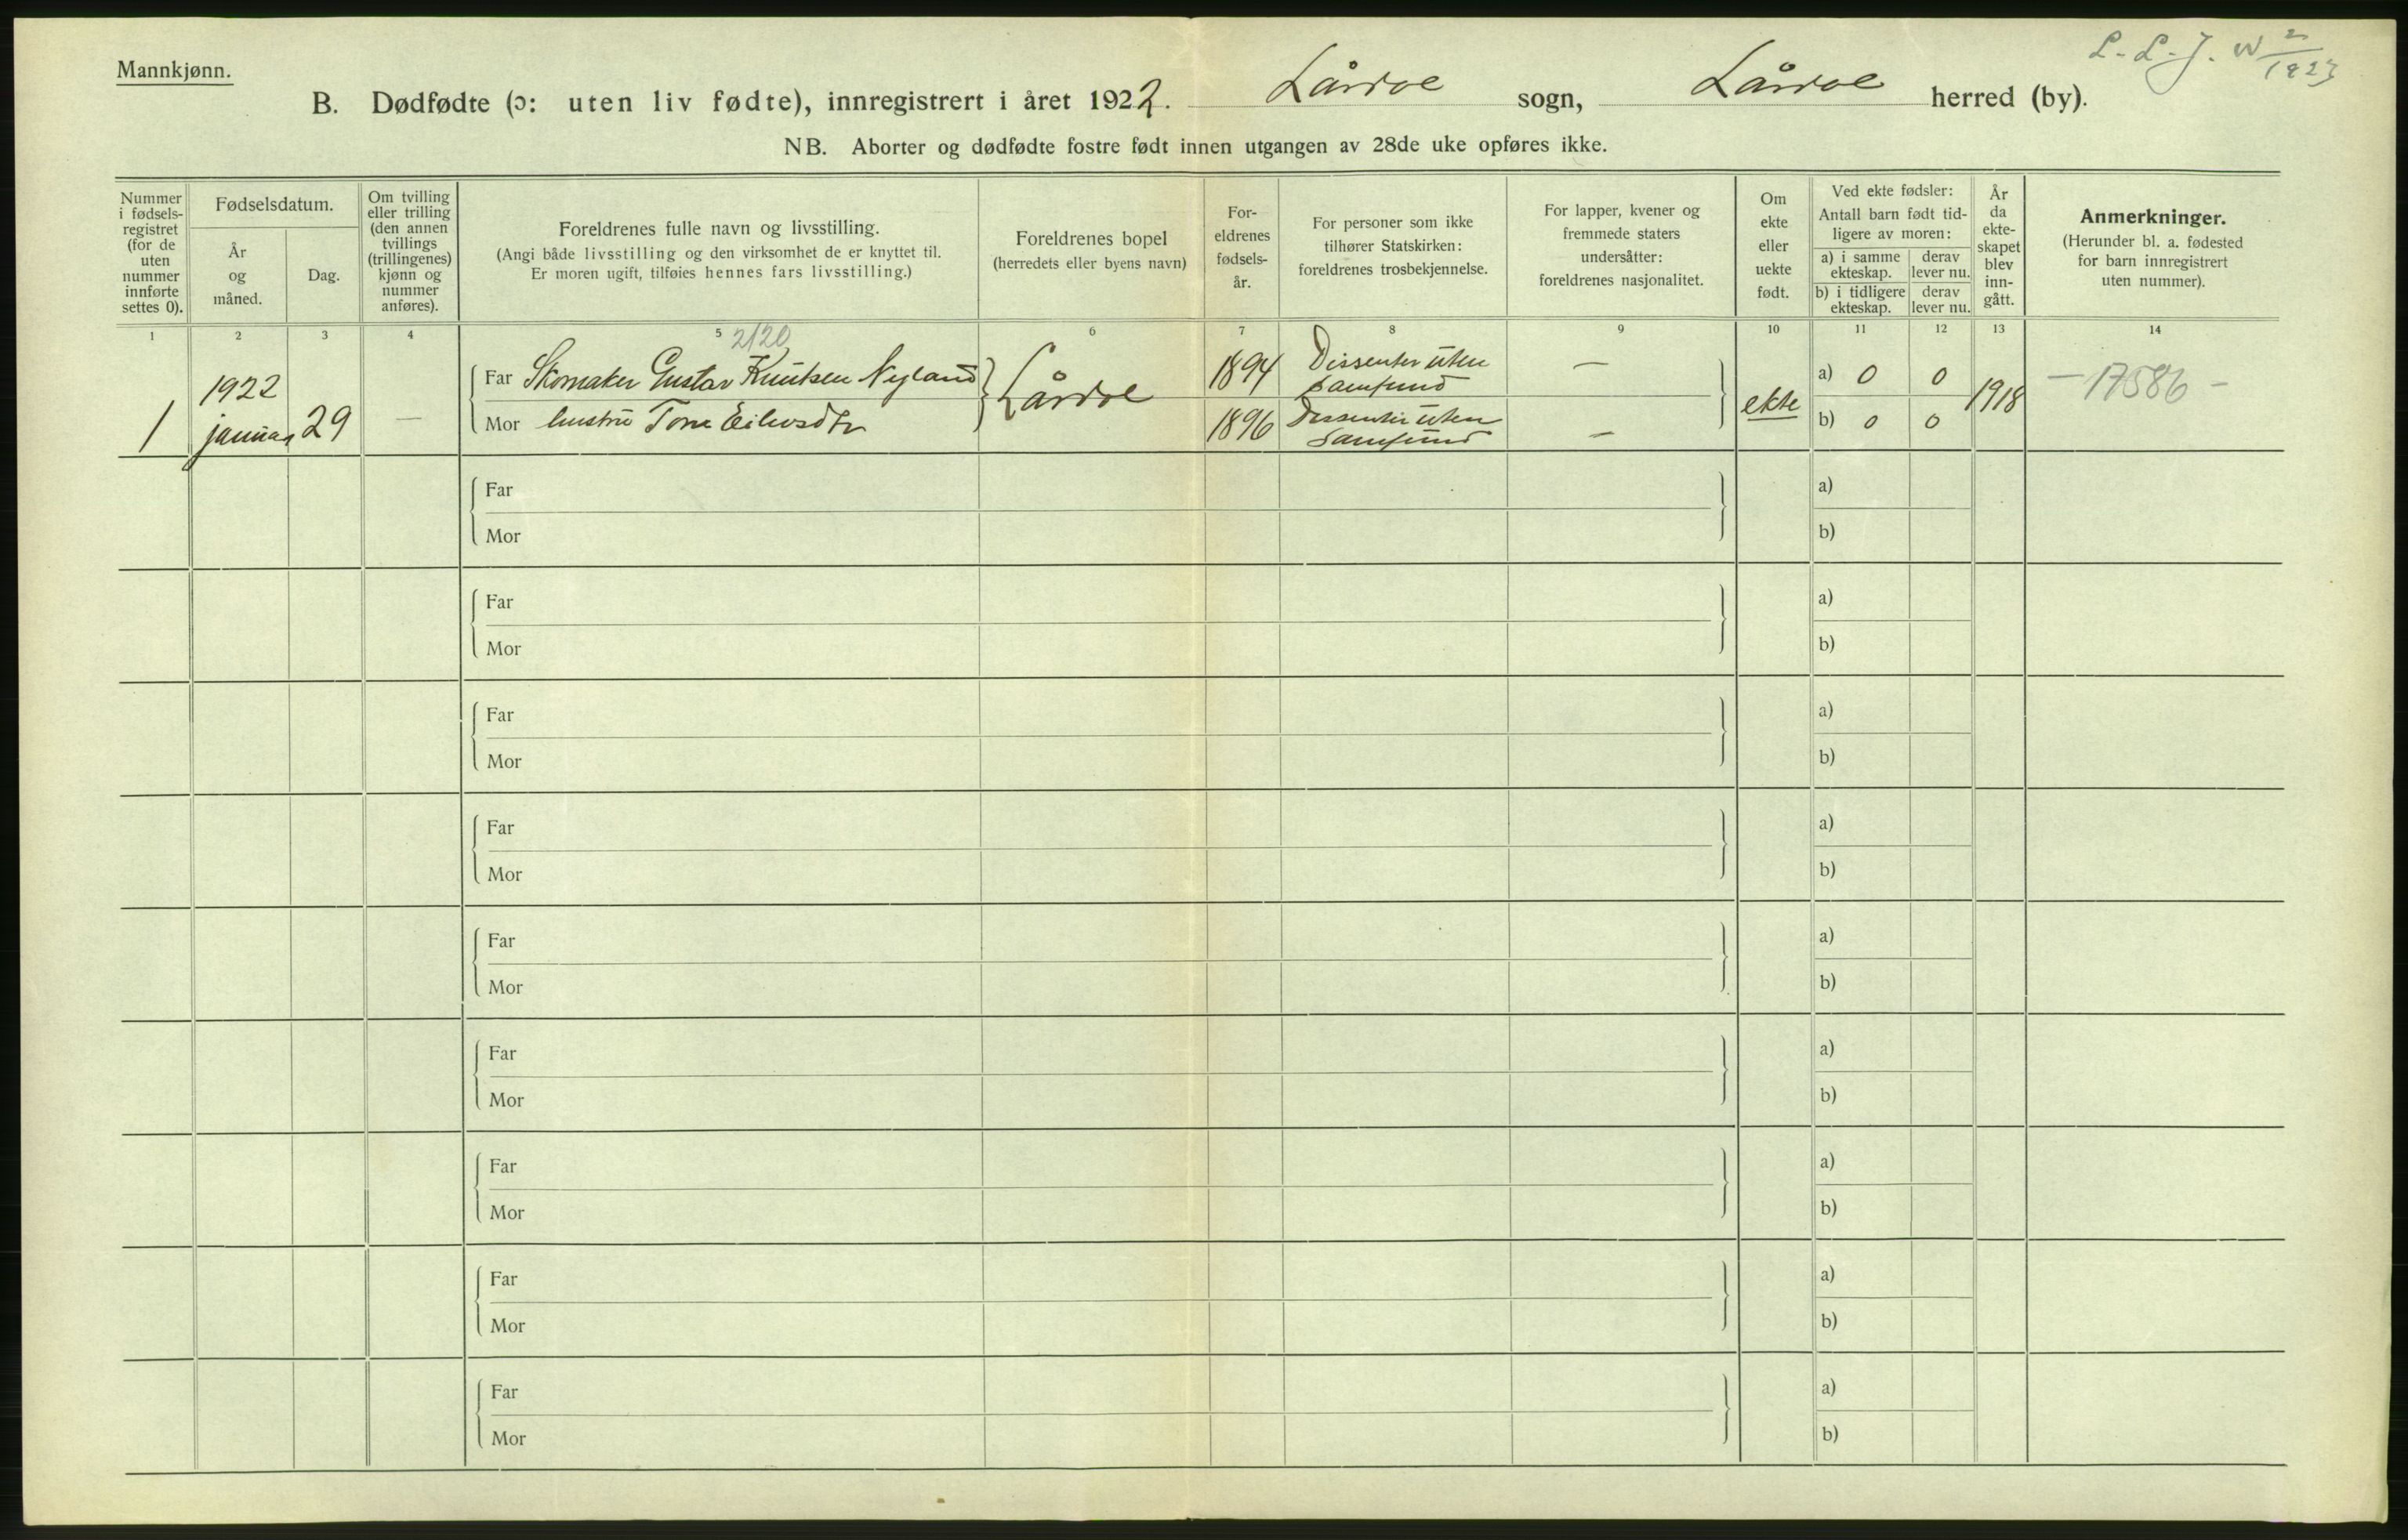 Mannkjønn.
L. L. J. 2/1923
B. Dødfødte (ɔ: uten liv fødte), innregistrert i året 1922. Lårdal sogn, Lårdal herred (by).
NB. Aborter og dødfødte fostre født innen utgangen av 28de uke opføres ikke.
Nummer
i fødsels-
registret
(for de
uten
nummer
innførte
settes 0).
Fødselsdatum.
År
og
måned.
Dag.
Om tvilling
eller trilling
(den annen
tvillings
(trillingenes)
kjønn og
nummer
anføres).
Foreldrenes fulle navn og livsstilling.
(Angi både livsstilling og den virksomhet de er knyttet til.
Er moren ugift, tilføies hennes fars livsstilling.)
Foreldrenes bopel
(herredets eller byens navn)
For-
eldrenes
fødsels-
år.
For personer som ikke
tilhører Statskirken:
foreldrenes trosbekjennelse.
For lapper, kvener og
fremmede staters
undersåtter:
foreldrenes nasjonalitet.
Om
ekte
eller
uekte
født.
Ved ekte fødsler:
Antall barn født tid-
ligere av moren:
a) i samme
ekteskap.
derav
lever nu.
b) i tidligere
ekteskap.
derav
lever nu.
År
da
ekte-
skapet
blev
inn-
gått.
Anmerkninger.
(Herunder bl. a. fødested
for barn innregistrert
uten nummer).
1 2 3 4 5 6 7 8 9 10 11 12 13 14
2120
1
1922
januar
29
—
Far Skomaker Gustav Knutsen Nyland
Mor hustru Tone Eilevsdtr
Lårdal
1894
1896
Dissenter uten
samfund
Dissenter uten
samfund
—
—
ekte
a) 0 0
b) 0 0
1918
— 17586 —
Far a)
Mor b)
Far a)
Mor b)
Far a)
Mor b)
Far a)
Mor b)
Far a)
Mor b)
Far a)
Mor b)
Far a)
Mor b)
Far a)
Mor b)
Far a)
Mor b)